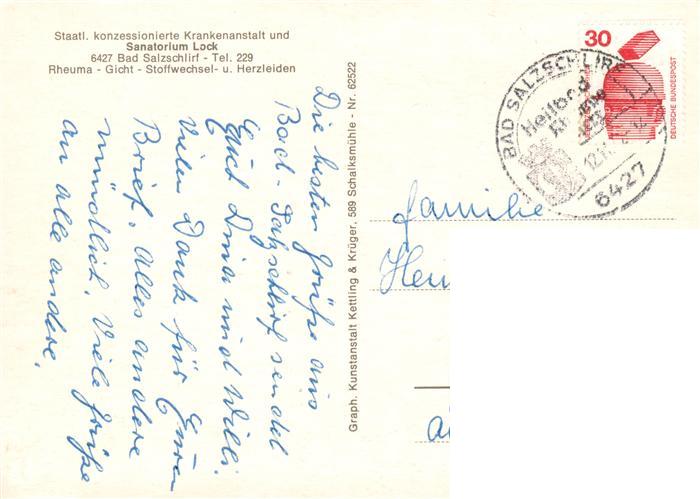 Staatl. konzessionierte Krankenanstalt und
Sanatorium Lock
6427 Bad Salzschlirf - Tel. 229
Rheuma - Gicht - Stoffwechsel- u. Herzleiden
Die besten Grüße aus
Bad-Salzschlirf sendet
Euch und Willi.
Vielen Dank für Euren
Brief. Alles andere
mündlich. Viele Grüße
an alle andere.
Graph. Kunstanstalt Kettling & Krüger, 589 Schalksmühle - Nr. 62522
30
DEUTSCHE BUNDESPOST
BAD SALZSCHLIRF
Heilbad
6427
Familie
Hein